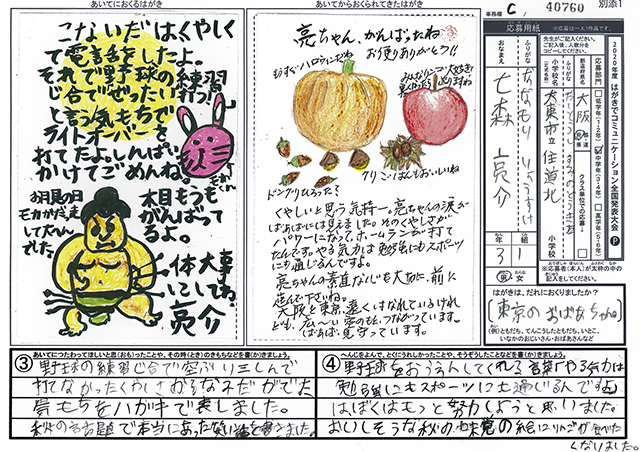 あいてにおくるはがき
こないだはくやしく
て電話をしたよ。
それで野球の練習
じ合でぜったい打つ!
と言う気もちで
ライトオーバーを
打てたよ。しんぱい
かけてごめんね。
お月見の日
モカがだっ走
して大へん
でした。
木目もうも
がんばって
るよ。
体大事
にしてね。
亮介
あいてからおくられてきたはがき
亮ちゃん、がんばったね
お便りありがとう!!
もうすぐハロウィンだね
みんなリンゴ大好き!
クリごはんもおいしいね
ドングリひろった?
くやしいと思う気持ー。亮ちゃんの涙が
ばあばには見えました。そのくやしさが
パワーになって、ホームランが打て
たんです。やる気力は勉強にもスポーツ
にも通じるんですよ。
亮ちゃんの素直な心も大切に、前に
進んで下さいね。
大阪と東京、遠くはなれているけれ
ども、広〜い空のもと、つながっています。
ばあばも見守っています。
事務欄 C, 40760
別添1
応募用紙
※応募は一人1作品です。
2020年度 はがきでコミュニケーション全国発表大会
応募部門
低学年(1・2年)
中学年(3・4年)
高学年(5・6年)
クラス単位での応募
都道府県名
大阪
小学校名
大東市立 住道北
小学校
ふりがな
ななもり りょうすけ
おなまえ
七森 亮介
3年
1組
男 女
※応募者(本人)が太枠の中の
記入をしてください。
はがきは、だれにおくりましたか?
(東京のおばあちゃん)
(例)ともだち、てんこうしたともだち、いとこ、
いなかのおじいさん・おばあさんなど
③
あいてにつたわってほしいと思(おも)ったことや、その時(とき)のきもちなどを書(か)きましょう。
野球の練習じ合で空ぶり三しんで
打てなかったくやしさとおきなみだがでた
気もちをハガキで表しました。
秋の名古屋で本当にあった笑い話を書きました。
④
へんじをよんで、とくにうれしかったことや、そうぞうしたことなどを書(か)きましょう。
野球をおうえんしてくれる言葉「やる気力は
勉強にもスポーツにも通じるんですよ」
はぼくはもっと努力しようと思いました。
おいしそうな秋の味覚の絵にリンゴが食べた
くなりました。